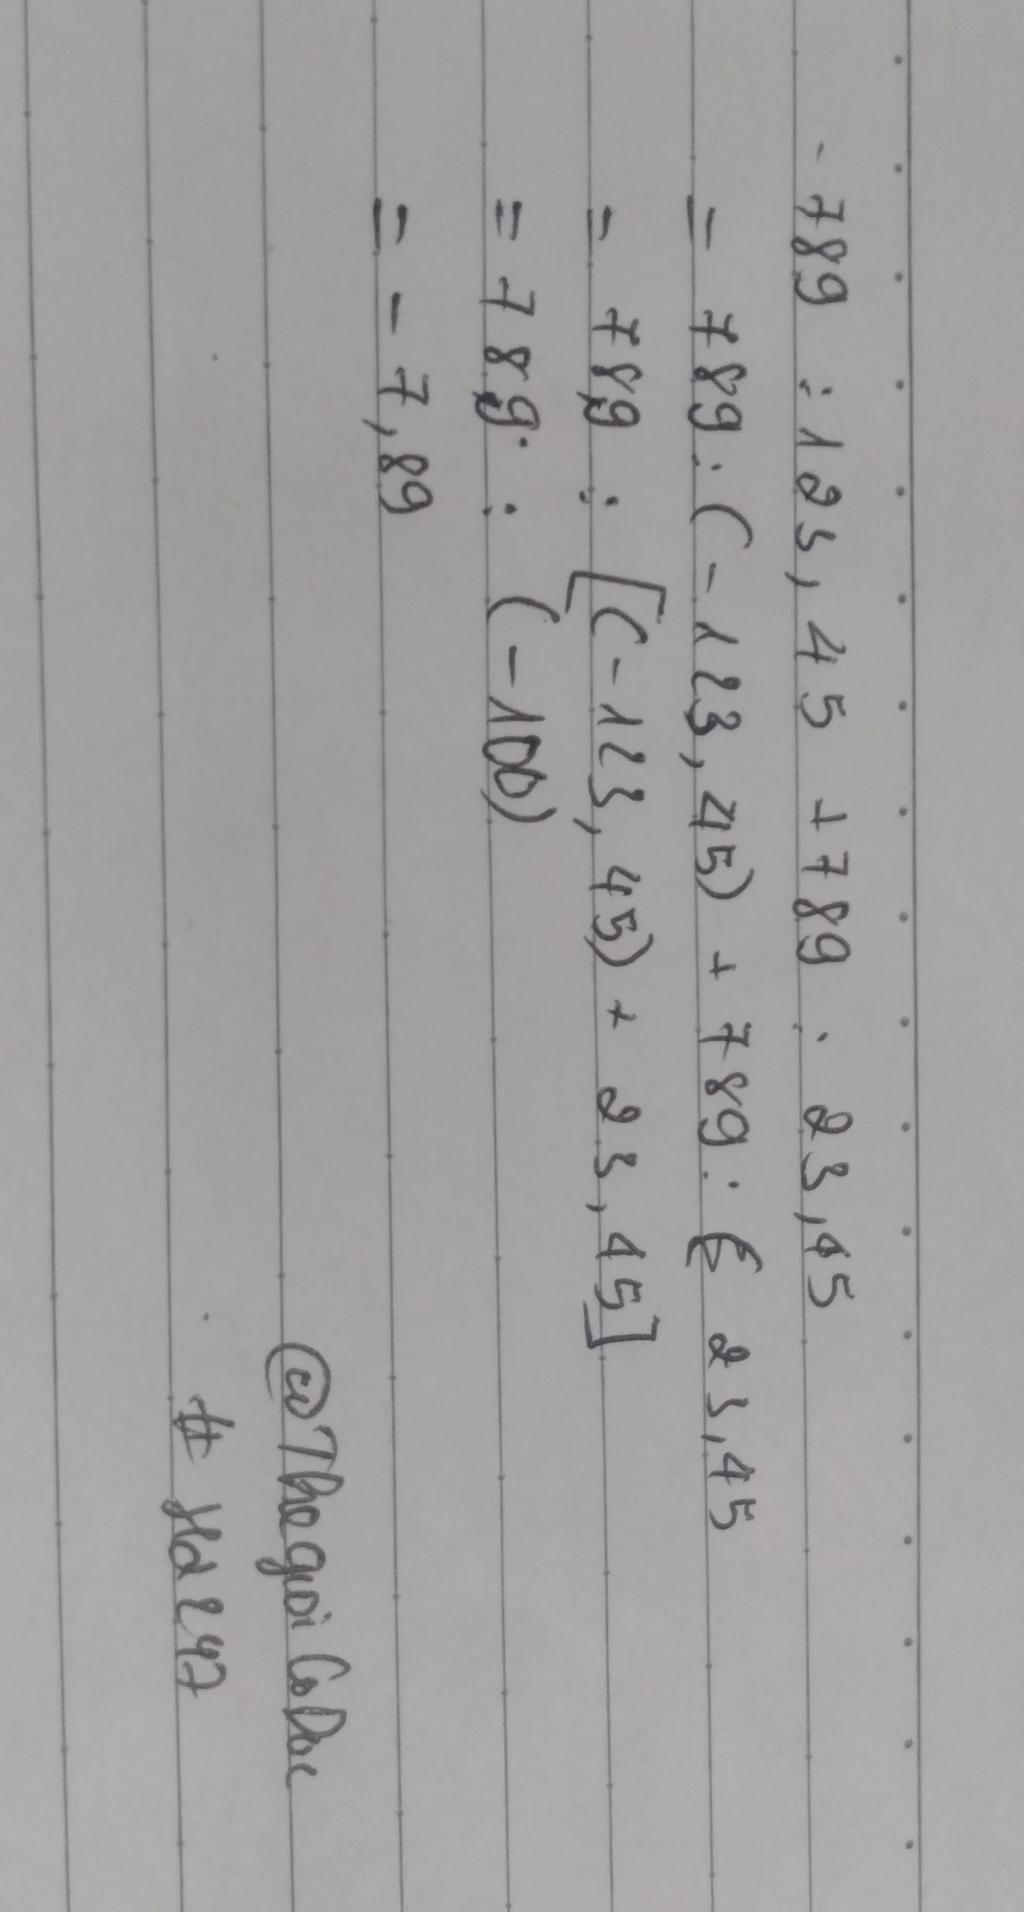 - 789 : 123,45 + 789 : 23,45
= 789 : (-123,45) + 789 : 23,45
= 789 : [(-123,45) + 23,45]
= 789 : (-100)
= - 7,89
@ThegioiCoDoc
# Hd247